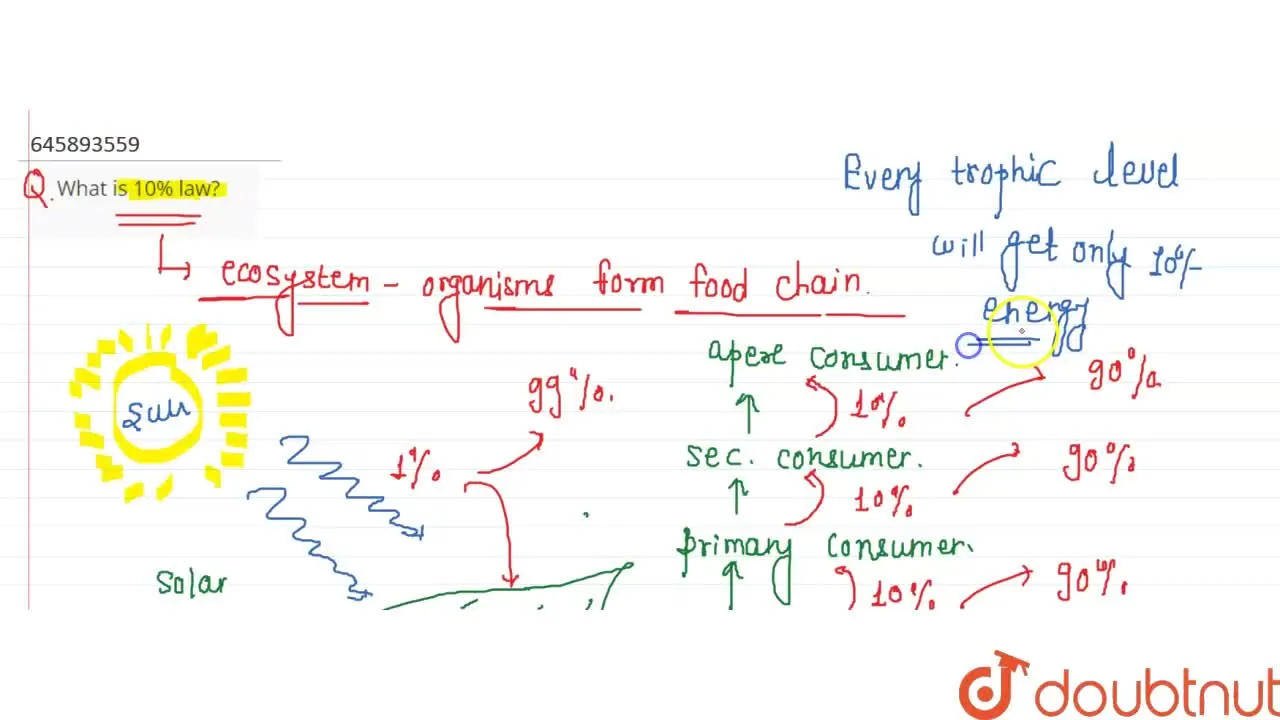 645893559
Q. What is 10% law?
Every trophic level
will get only 10%
energy
ecosystem - organisms form food chain.
apex consumer.
99%.
10%.
90%.
Sun
1%.
sec. consumer.
90%.
10%.
primary consumer.
Solar
10%
90%.
doubtnut